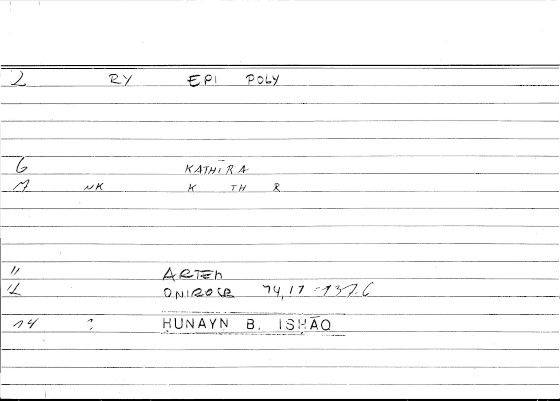 2 RY EPI POLY
6 KATHĪRA
M NK K TH R
" ARTEM
12 ONIROCR 74,17 = 137.6
14 : ḤUNAYN B. ISḤĀQ